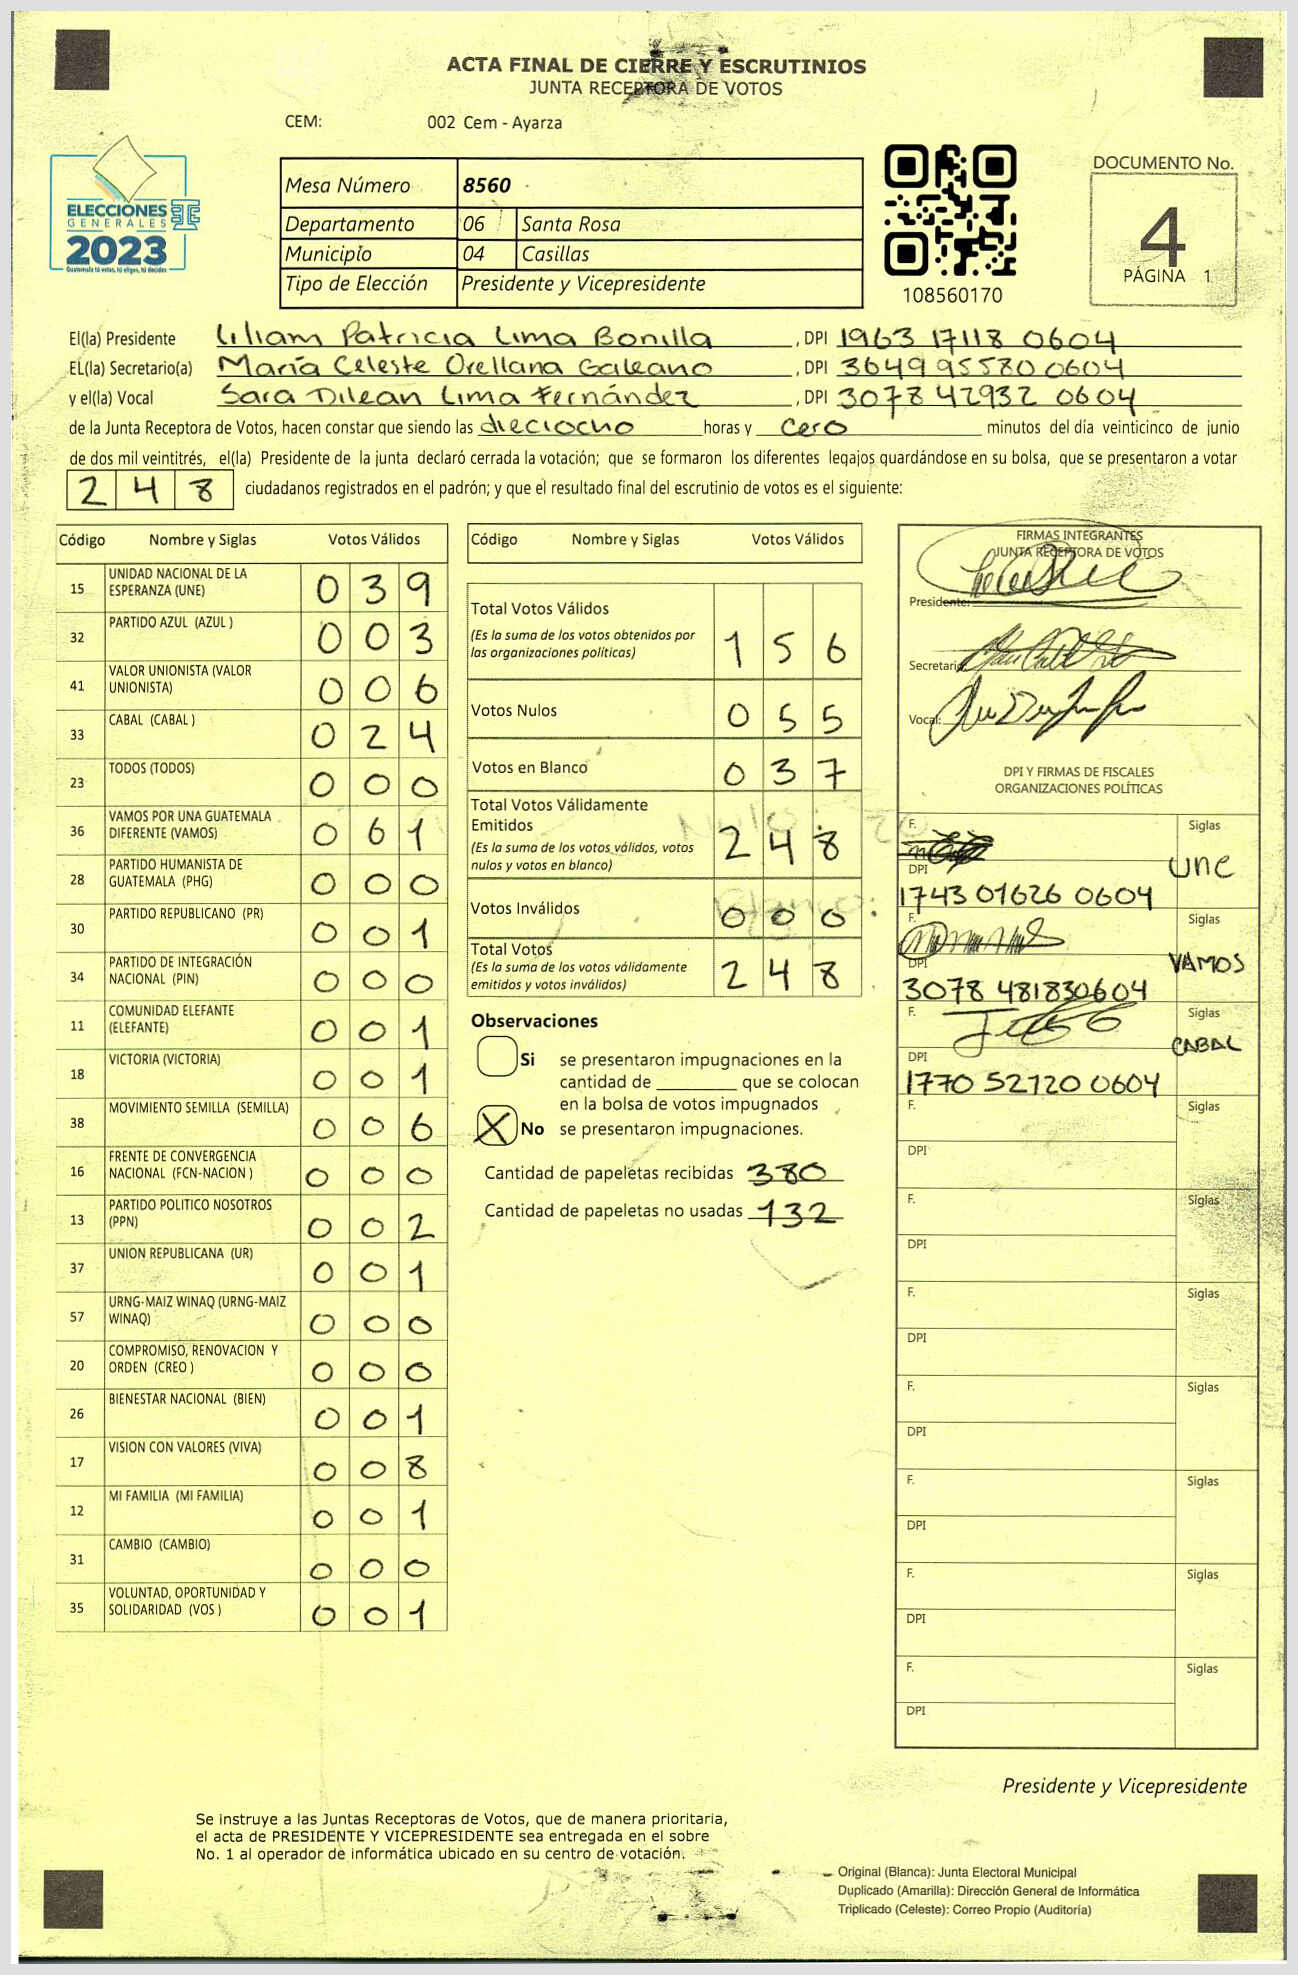 ACTA FINAL DE CIERRE Y ESCRUTINIOS
JUNTA RECEPTORA DE VOTOS
CEM: 002 Cem - Ayarza
ELECCIONES
GENERALES
2023
Guatemala tú votas, tú eliges, tú decides
Mesa Número 8560
Departamento 06 Santa Rosa
Municipio 04 Casillas
Tipo de Elección Presidente y Vicepresidente
108560170
DOCUMENTO No.
4
PÁGINA 1
El(la) Presidente Liliam Patricia Lima Bonilla, DPI 1963 17118 0604
EL(la) Secretario(a) María Celeste Orellana Galeano, DPI 3649 95580 0604
y el(la) Vocal Sara Dilean Lima Fernández, DPI 3078 42932 0604
de la Junta Receptora de Votos, hacen constar que siendo las dieciocho horas y cero minutos del día veinticinco de junio
de dos mil veintitrés, el(la) Presidente de la junta declaró cerrada la votación; que se formaron los diferentes legajos quardándose en su bolsa, que se presentaron a votar
2 4 8 ciudadanos registrados en el padrón; y que el resultado final del escrutinio de votos es el siguiente:
Código Nombre y Siglas Votos Válidos
15 UNIDAD NACIONAL DE LA ESPERANZA (UNE) 0 3 9
32 PARTIDO AZUL (AZUL ) 0 0 3
41 VALOR UNIONISTA (VALOR UNIONISTA) 0 0 6
33 CABAL (CABAL ) 0 2 4
23 TODOS (TODOS) 0 0 0
36 VAMOS POR UNA GUATEMALA DIFERENTE (VAMOS) 0 6 1
28 PARTIDO HUMANISTA DE GUATEMALA (PHG) 0 0 0
30 PARTIDO REPUBLICANO (PR) 0 0 1
34 PARTIDO DE INTEGRACIÓN NACIONAL (PIN) 0 0 0
11 COMUNIDAD ELEFANTE (ELEFANTE) 0 0 1
18 VICTORIA (VICTORIA) 0 0 1
38 MOVIMIENTO SEMILLA (SEMILLA) 0 0 6
16 FRENTE DE CONVERGENCIA NACIONAL (FCN-NACION ) 0 0 0
13 PARTIDO POLITICO NOSOTROS (PPN) 0 0 2
37 UNION REPUBLICANA (UR) 0 0 1
57 URNG-MAIZ WINAQ (URNG-MAIZ WINAQ) 0 0 0
20 COMPROMISO, RENOVACION Y ORDEN (CREO ) 0 0 0
26 BIENESTAR NACIONAL (BIEN) 0 0 1
17 VISION CON VALORES (VIVA) 0 0 8
12 MI FAMILIA (MI FAMILIA) 0 0 1
31 CAMBIO (CAMBIO) 0 0 0
35 VOLUNTAD, OPORTUNIDAD Y SOLIDARIDAD (VOS ) 0 0 1
Código Nombre y Siglas Votos Válidos
Total Votos Válidos 1 5 6
(Es la suma de los votos obtenidos por
las organizaciones políticas)
Votos Nulos 0 5 5
Votos en Blanco 0 3 7
Total Votos Válidamente
Emitidos 2 4 8
(Es la suma de los votos válidos, votos
nulos y votos en blanco)
Votos Inválidos 0 0 0
Total Votos 2 4 8
(Es la suma de los votos válidamente
emitidos y votos inválidos)
Observaciones
Si se presentaron impugnaciones en la
cantidad de ________ que se colocan
en la bolsa de votos impugnados
X No se presentaron impugnaciones.
Cantidad de papeletas recibidas 380
Cantidad de papeletas no usadas 132
FIRMAS INTEGRANTES
JUNTA RECEPTORA DE VOTOS
Presidente:
Secretario
Vocal:
DPI Y FIRMAS DE FISCALES
ORGANIZACIONES POLÍTICAS
F. Siglas
UNE
DPI
1743 01626 0604
F. Siglas
VAMOS
DPI
3078 48183 0604
F. Siglas
CABAL
DPI
1770 52720 0604
F. Siglas
DPI
F. Siglas
DPI
F. Siglas
DPI
F. Siglas
DPI
F. Siglas
DPI
F. Siglas
DPI
F. Siglas
DPI
Presidente y Vicepresidente
Se instruye a las Juntas Receptoras de Votos, que de manera prioritaria,
el acta de PRESIDENTE Y VICEPRESIDENTE sea entregada en el sobre
No. 1 al operador de informática ubicado en su centro de votación.
Original (Blanca): Junta Electoral Municipal
Duplicado (Amarilla): Dirección General de Informática
Triplicado (Celeste): Correo Propio (Auditoría)